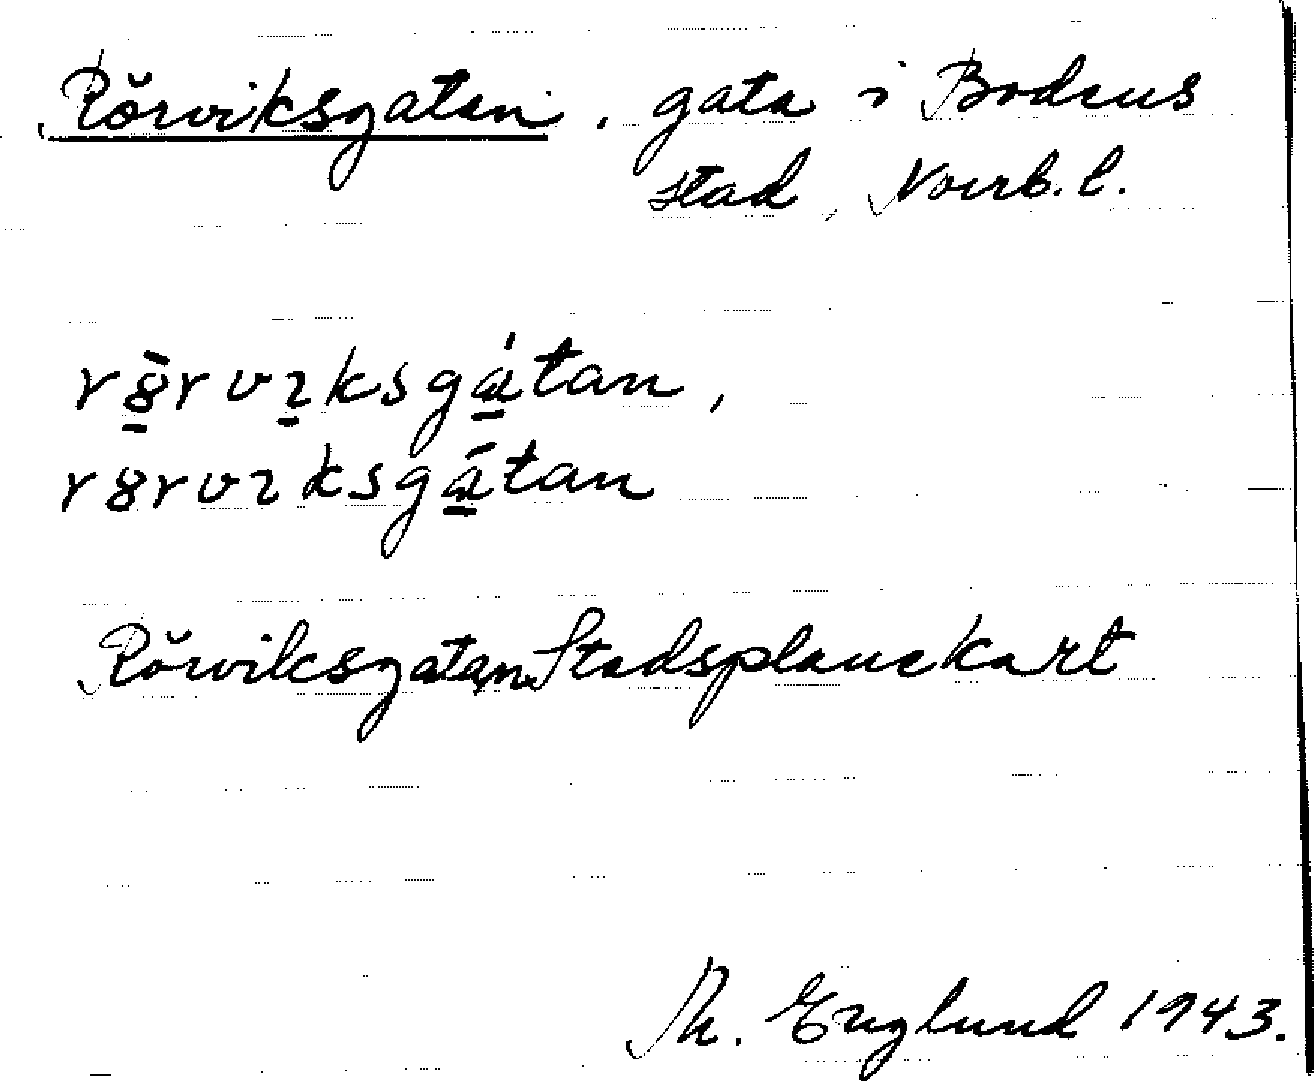 Rörviksgatan, gata i Bodens
stad, Norrb. l.
rȣ̀rvɿksgátan,
rȣrvɿksgátan
Rörviksgatan Stadsplanekart
Th. Englund 1943.